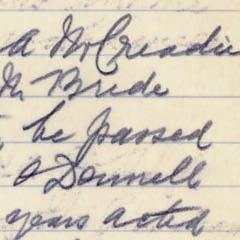 a McCreadie
M. Bride
be passed
O Donnell
years acted